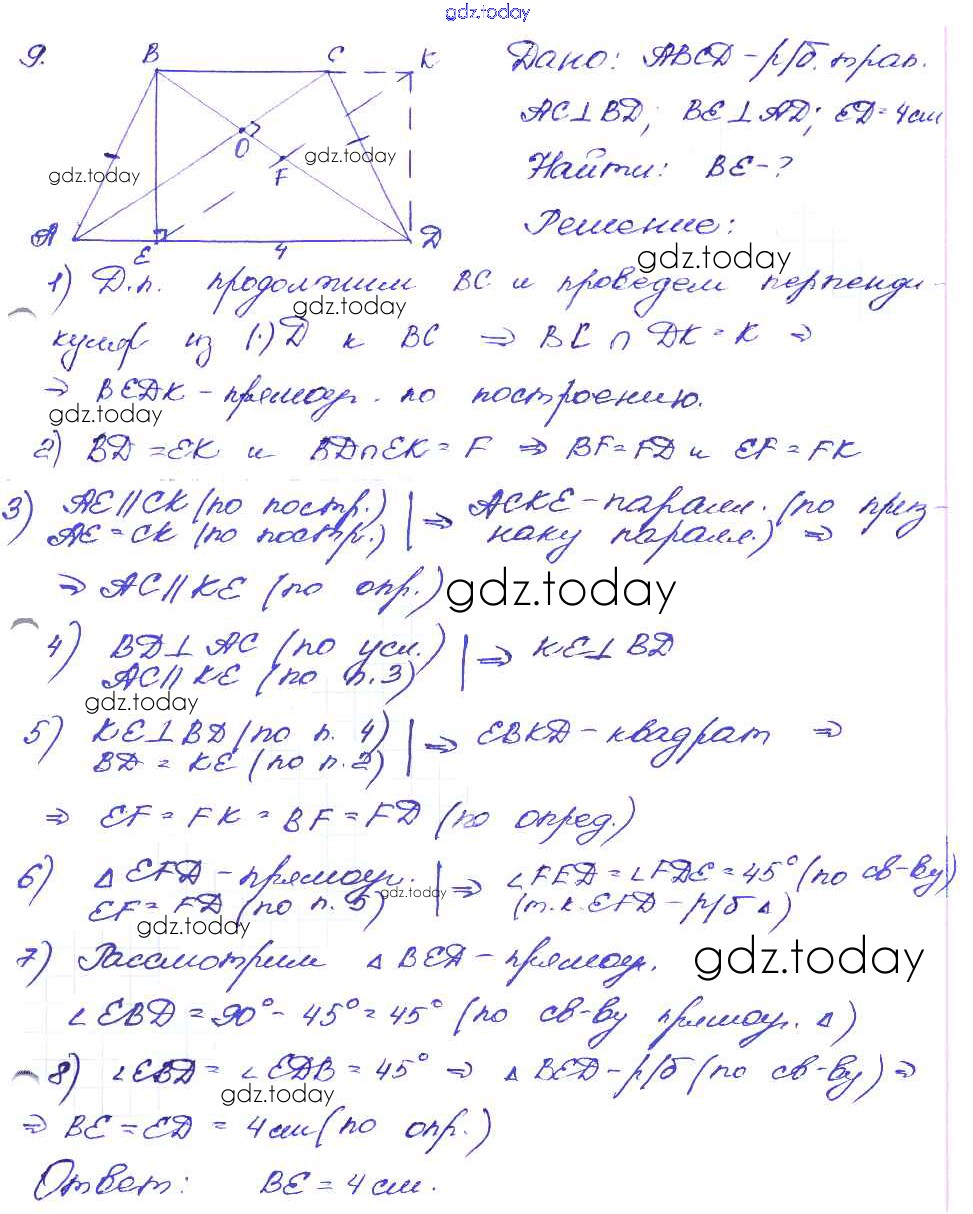 gdz.today
9.
B C K
O F
A E 4 D
gdz.today
gdz.today
Дано: ABCD – р/б. трап.
AC⊥BD; BE⊥AD; ED = 4см
Найти: BE – ?
Решение:
gdz.today
1) Д.п. продолжим BC и проведем перпенди-
gdz.today
куляр из (·)D к BC ⇒ BC ∩ DK = K ⇒
⇒ BEDK – прямоуг. по построению.
gdz.today
2) BD = EK и BD∩EK = F ⇒ BF = FD и EF = FK
3) AE||CK (по постр.) | ⇒ ACKE – паралл. (по приз-
AE = CK (по постр.) | наку паралл.) ⇒
⇒ AC||KE (по опр.)
gdz.today
4) BD⊥AC (по усл.) | ⇒ KE⊥BD
AC||KE (по п.3)
gdz.today
5) KE⊥BD (по п. 4) | ⇒ EBKD – квадрат ⇒
BD = KE (по п.2)
⇒ EF = FK = BF = FD (по опред.)
6) △EFD – прямоуг. | ⇒ ∠FED = ∠FDE = 45° (по св-ву)
EF = FD (по п. 5) (т.к. EFD – р/б △)
gdz.today
gdz.today
7) Рассмотрим △BED – прямоуг.
gdz.today
∠EBD = 90° - 45° = 45° (по св-ву прямоуг. △)
8) ∠EBD = ∠EDB = 45° ⇒ △BED – р/б (по св-ву) ⇒
gdz.today
⇒ BE = ED = 4см (по опр.)
Ответ: BE = 4 см.